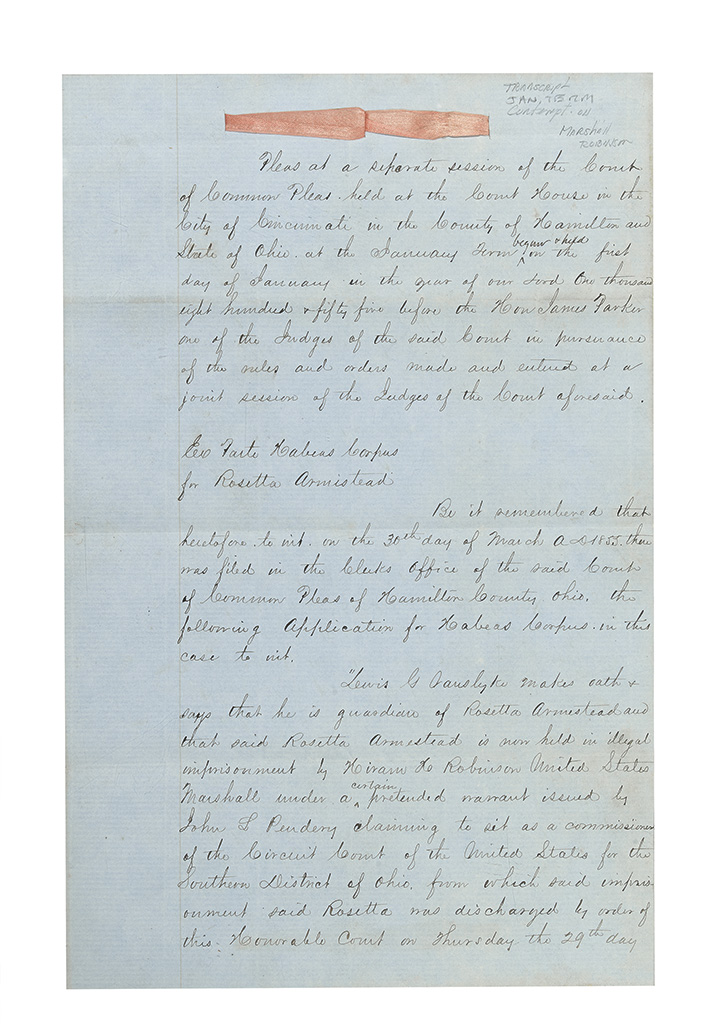 TRANSCRIPT
JAN, TERM
Contempt - on
Marshall
ROBINSON
Pleas at a separate session of the Court
of Common Pleas. held at the Court House in the
City of Cincinnati in the County of Hamilton and
State of Ohio. at the January Term begun & held on the first
day of January in the year of our Lord One thousand
eight hundred & fifty five before the Hon James Parker
one of the Judges of the said Court in pursuance
of the rules and orders made and entered at a
joint session of the Judges of the Court aforesaid.
Ex Parte Habeas Corpus
for Rosetta Armistead
Be it remembered that
heretofore. to wit. on the 30th day of March A D 1855. there
was filed in the Clerks Office of the said Court
of Common Pleas of Hamilton County Ohio. the
following Application for Habeas Corpus. in this
case to wit.
"Lewis G Vanslyke makes oath &
says that he is guardian of Rosetta Armestead and
that said Rosetta Armestead is now held in illegal
imprisonment by Hiram H Robinson United States
Marshall under a certain pretended warrant issued by
John L Pendery claiming to sit as a commissioner
of the Circuit Court of the United States for the
Southern District of Ohio. from which said impris-
onment said Rosetta was discharged by order of
this Honorable Court on Thursday the 29th day